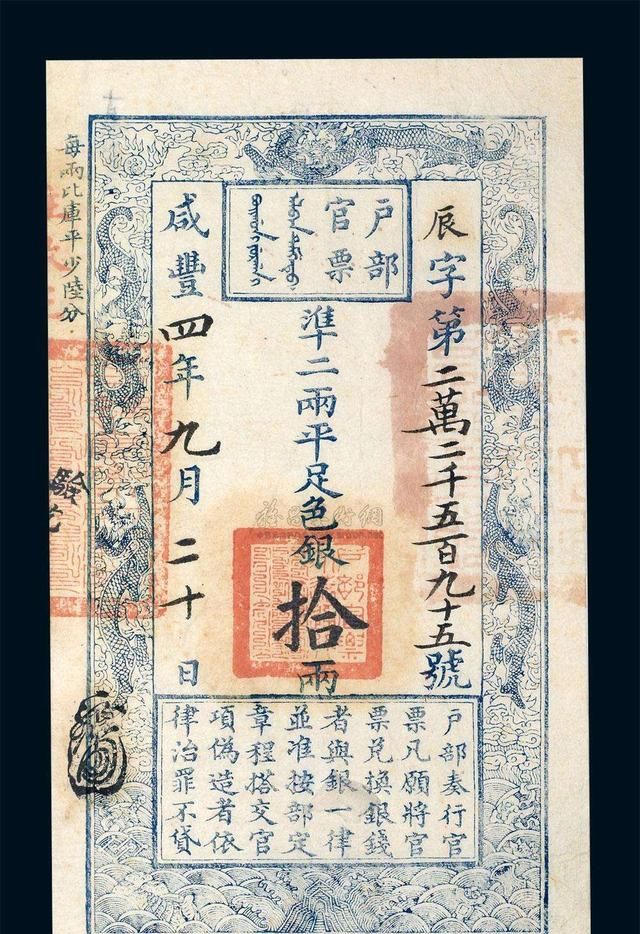 每兩比庫平少陸分
戶部
官票
辰字第二萬二千五百九十五號
準二兩平足色銀拾兩
咸豐四年九月二十日
戶部奏行官
票凡願將官
票兌換銀錢
者與銀一律
並准按部定
章程搭交官
項偽造者依
律治罪不貸